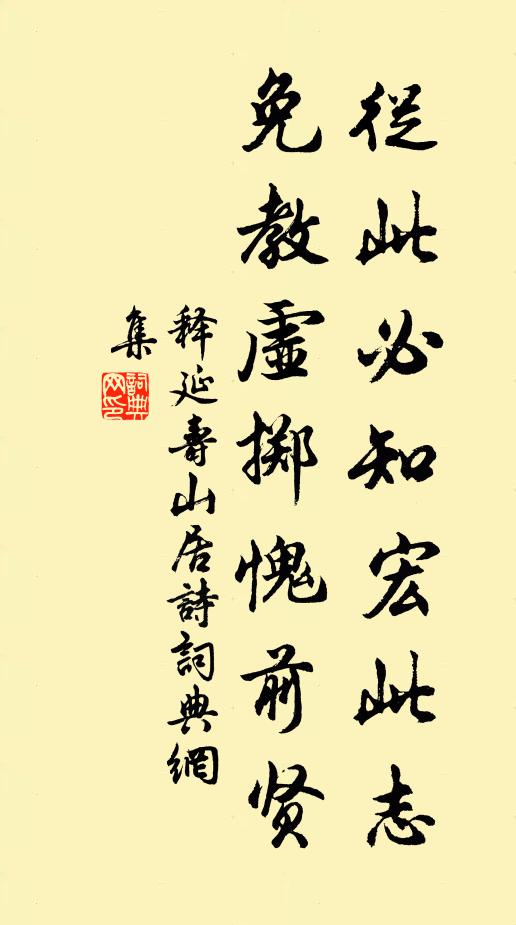 從此必知宏此志
免教虛擲愧前贤
释延壽山居詩詞典網
集
詞典网印